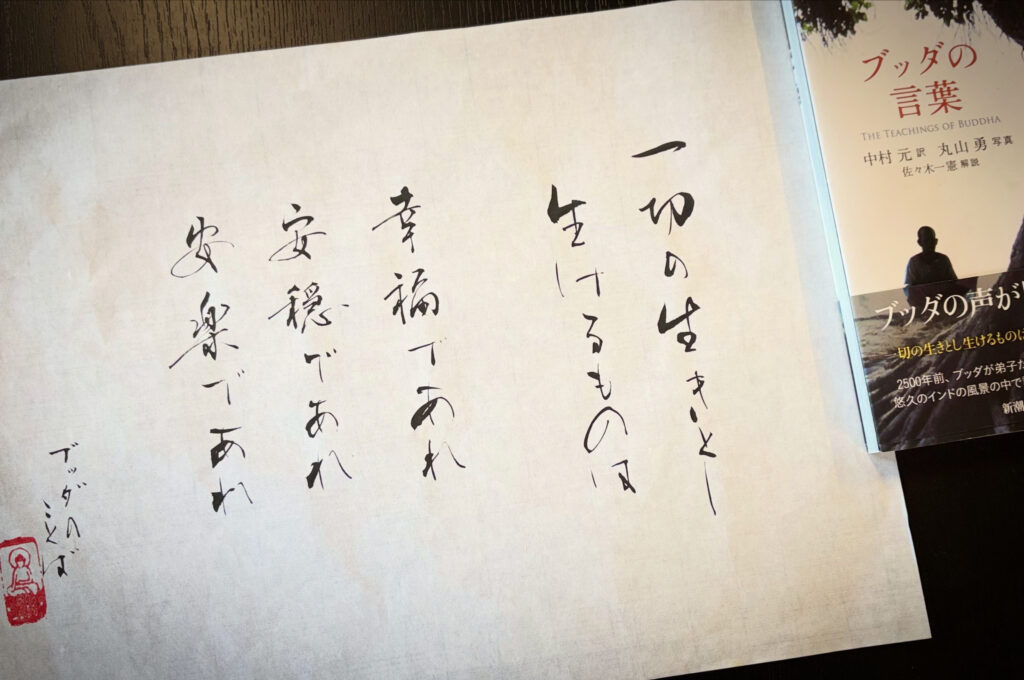 一切の生きとし
生けるものは
幸福であれ
安穏であれ
安楽であれ
ブッダの
ことば
ブッダの
言葉
THE TEACHINGS OF BUDDHA
中村 元 訳 丸山 勇 写真
佐々木一憲 解説
ブッダの声が
一切の生きとし生けるものは
2500年前、ブッダが弟子た
悠久のインドの風景の中で
新潮